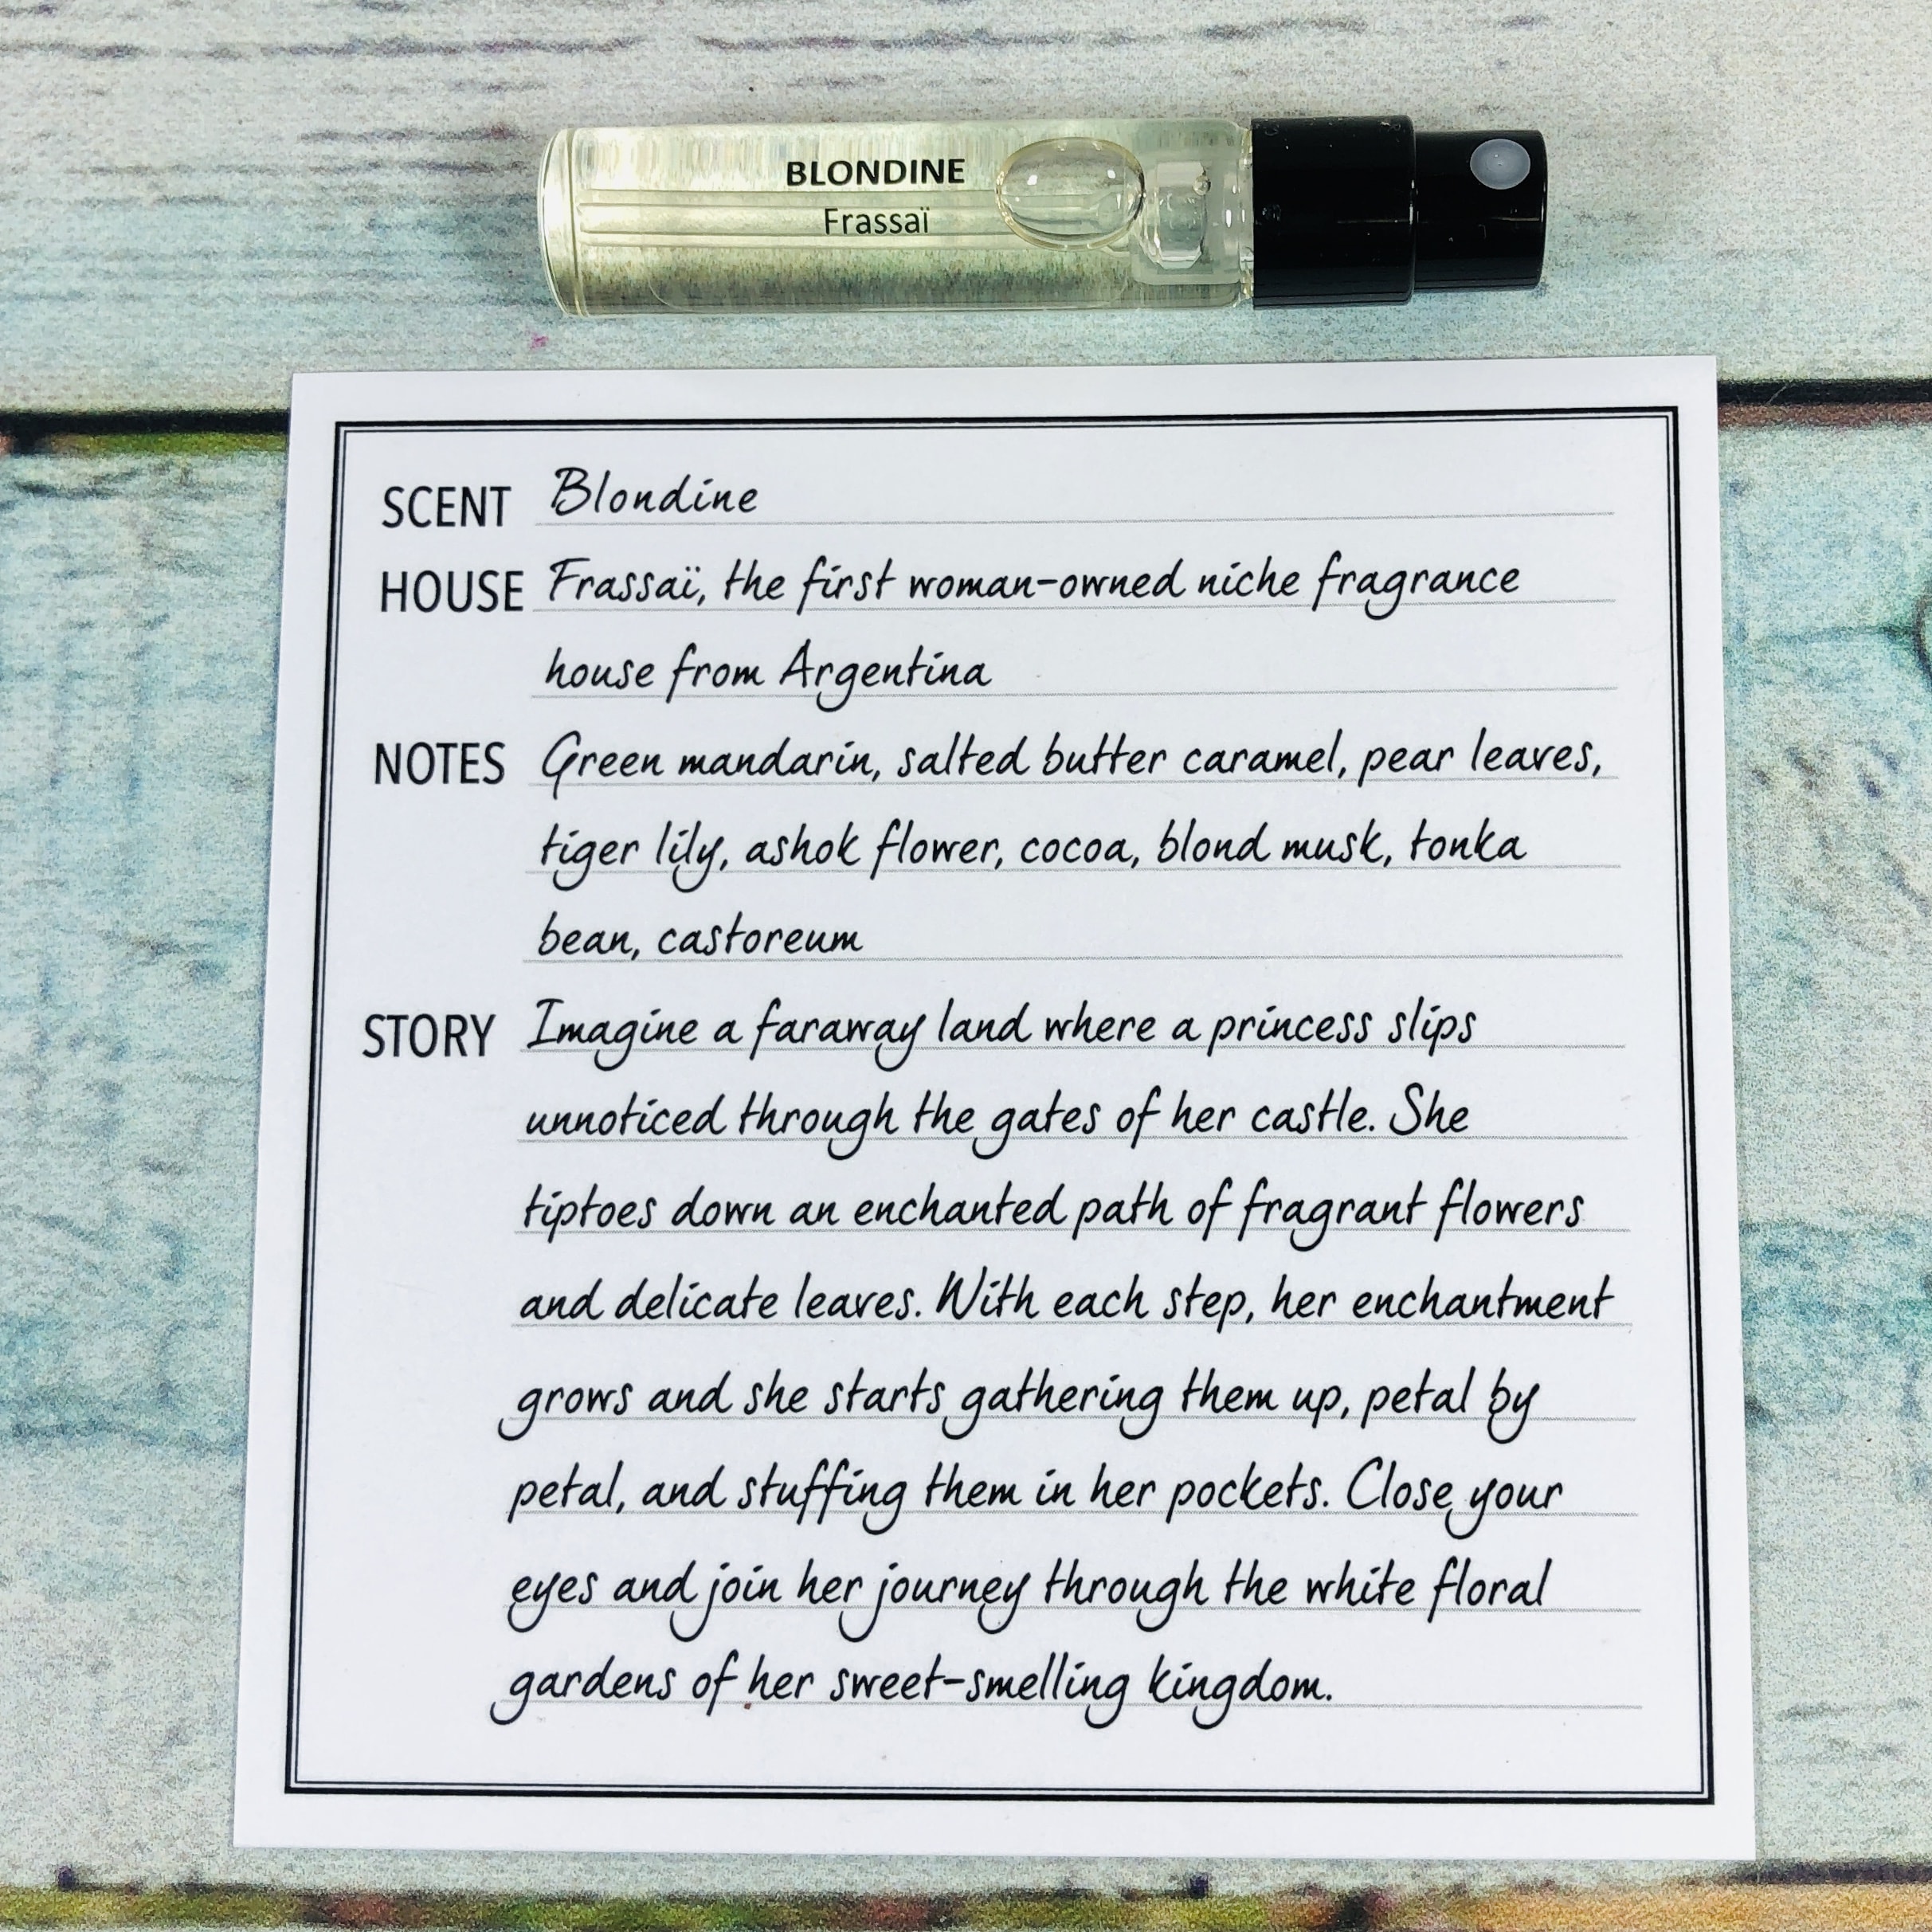 BLONDINE
Frassaï
SCENT Blondine
HOUSE Frassaï, the first woman-owned niche fragrance
house from Argentina
NOTES Green mandarin, salted butter caramel, pear leaves,
tiger lily, ashok flower, cocoa, blond musk, tonka
bean, castoreum
STORY Imagine a faraway land where a princess slips
unnoticed through the gates of her castle. She
tiptoes down an enchanted path of fragrant flowers
and delicate leaves. With each step, her enchantment
grows and she starts gathering them up, petal by
petal, and stuffing them in her pockets. Close your
eyes and join her journey through the white floral
gardens of her sweet-smelling kingdom.